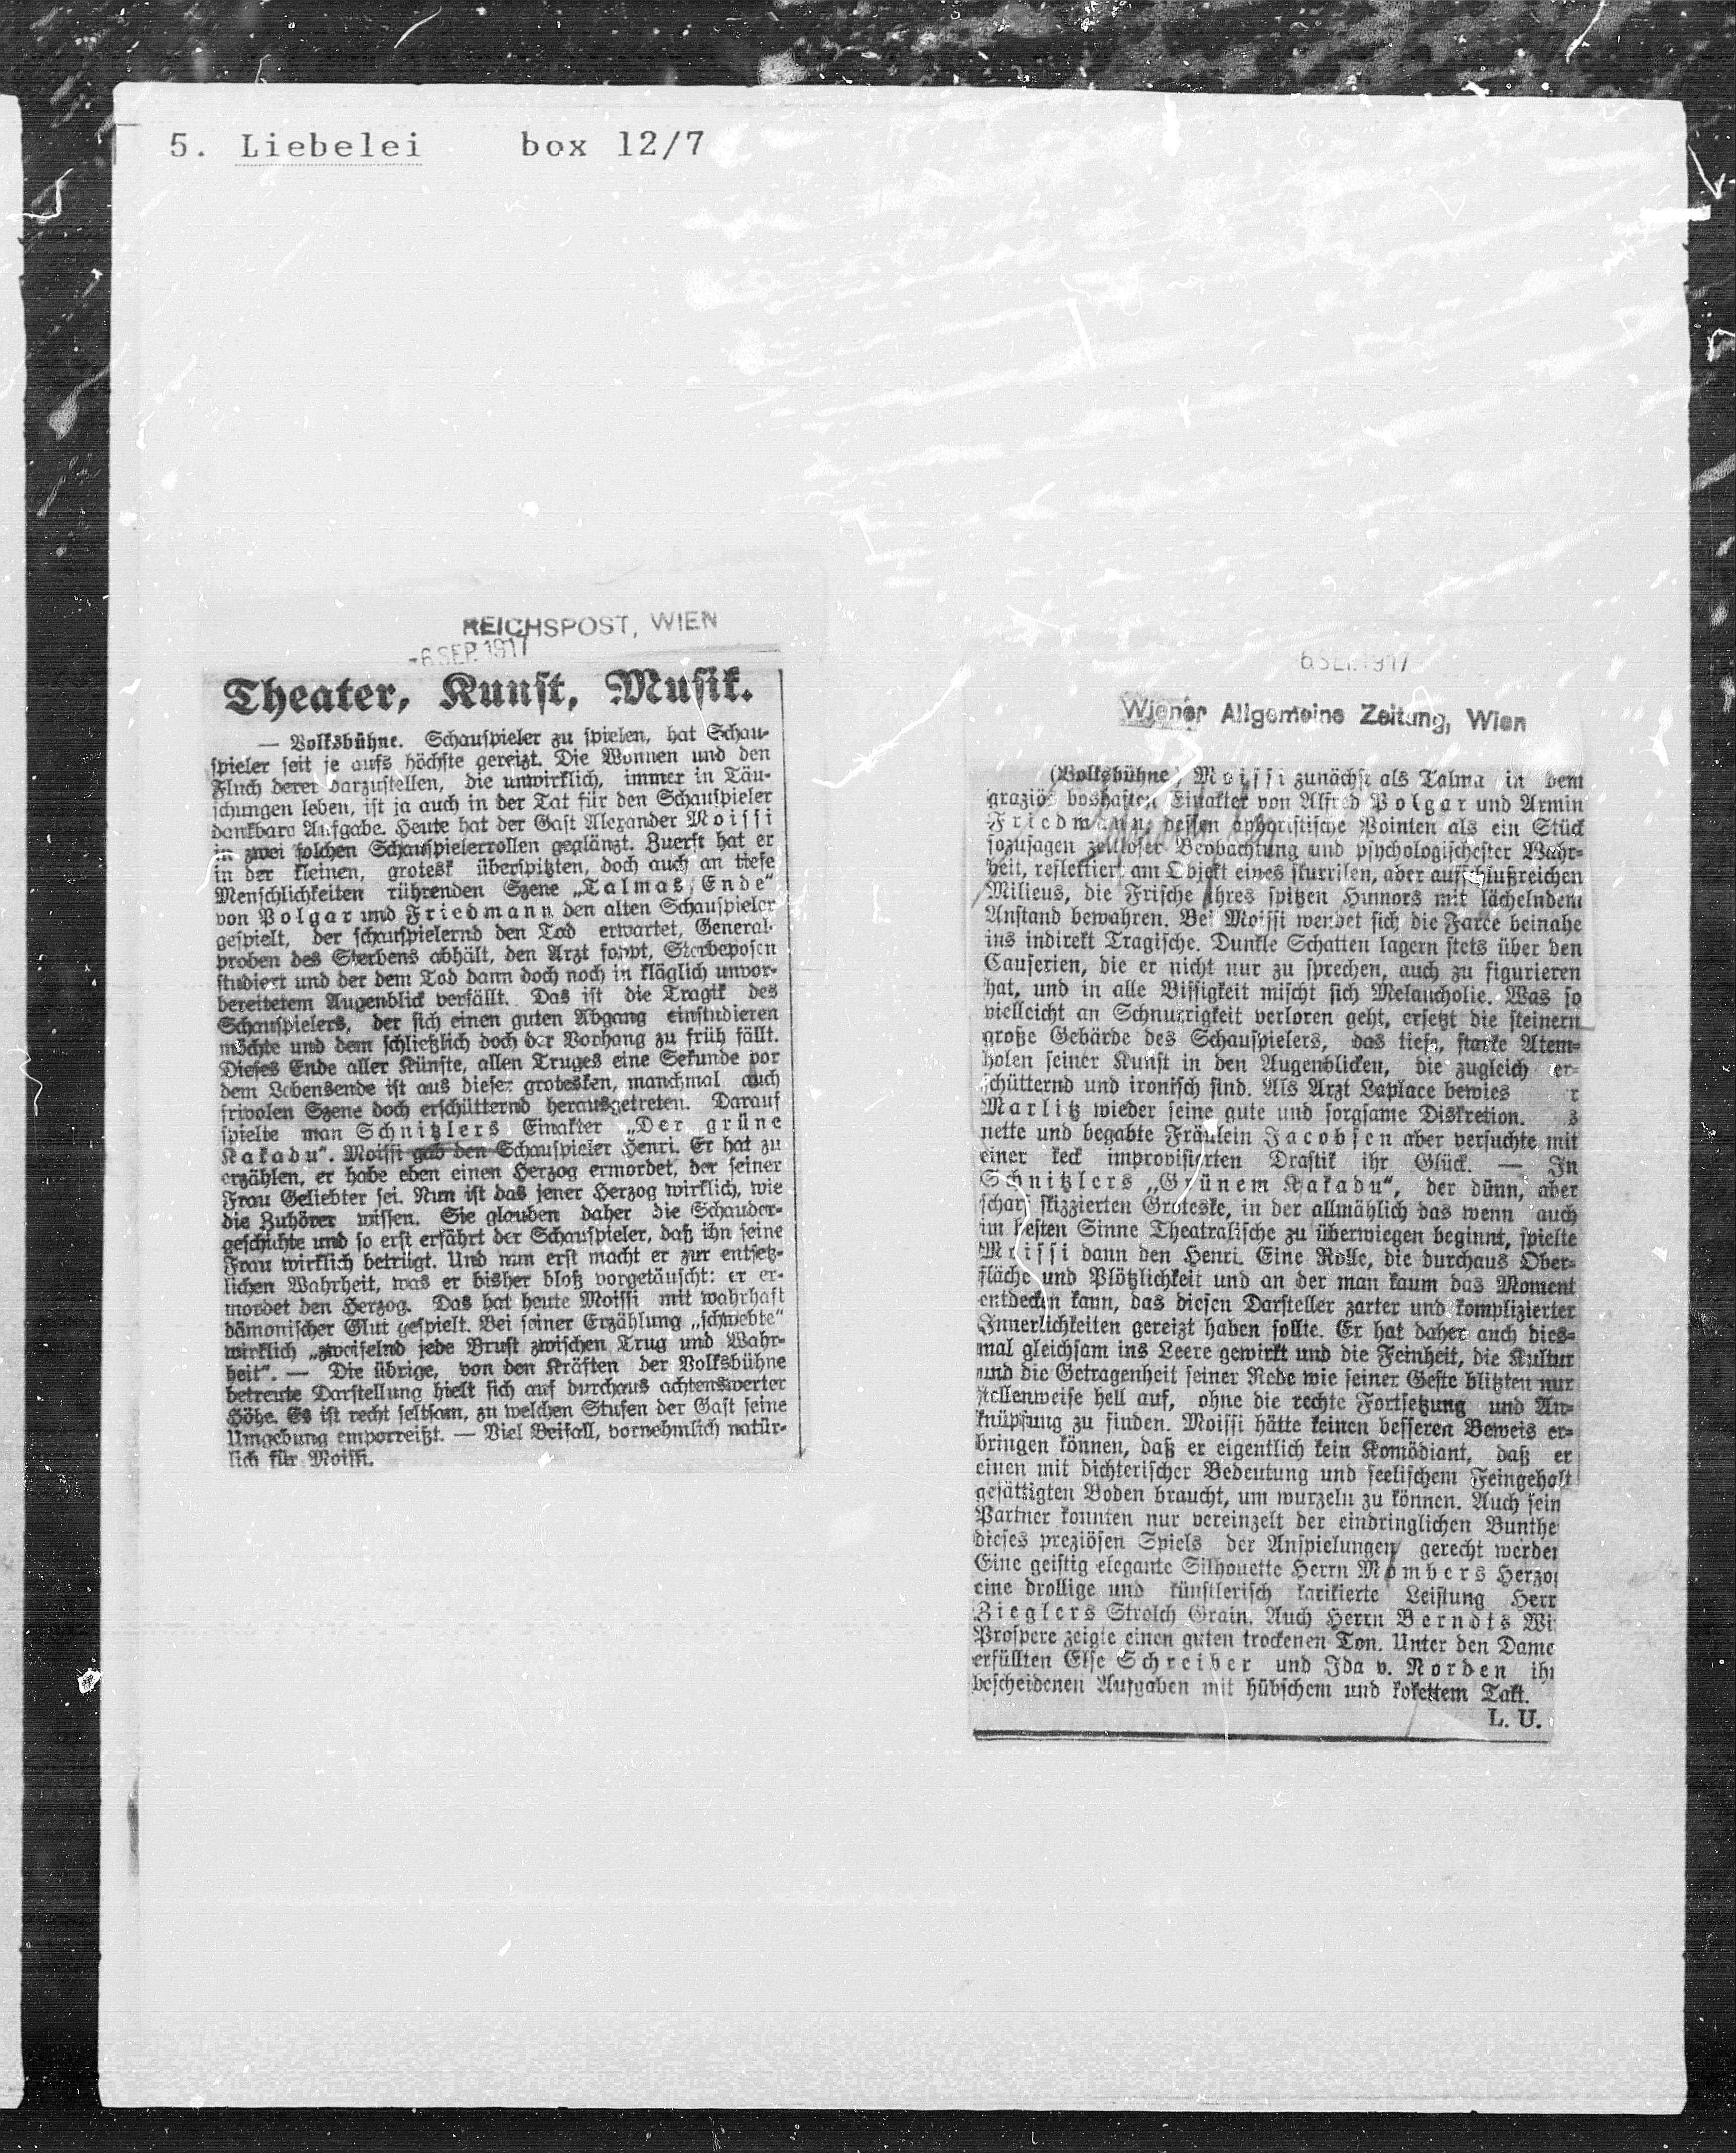 5. Liebelei box 12/7
REICHSPOST, WIEN
-6. SEP. 1917
Theater, Kunst, Musik.
— Volksbühne. Schauspieler zu spielen, hat Schau-
spieler seit je aufs höchste gereizt. Die Wonnen und den
Fluch derer darzustellen, die unwirklich, immer in Täu-
schungen leben, ist ja auch in der Tat für den Schauspieler
dankbare Aufgabe. Heute hat der Gast Alexander Moissi
in zwei solchen Schauspielerrollen geglänzt. Zuerst hat er
in der kleinen, grotesk überspitzten, doch auch an tiefe
Menschlichkeiten rührenden Szene „Talmas Ende"
von Polgar und Friedmann den alten Schauspieler
gespielt, der schauspielernd den Tod erwartet, General-
proben des Sterbens abhält, den Arzt foppt, Sterbeposen
studiert und der dem Tod dann doch noch in kläglich unvor-
bereitetem Augenblick verfällt. Das ist die Tragik des
Schauspielers, der sich einen guten Abgang einstudieren
möchte und dem schließlich doch der Vorhang zu früh fällt.
Dieses Ende aller Künste, allen Truges eine Sekunde vor
dem Lebensende ist aus dieser grotesken, manchmal auch
frivolen Szene doch erschütternd herausgetreten. Darauf
spielte man Schnitzlers Einakter „Der grüne
Kakadu". Moissi gab den Schauspieler Henri. Er hat zu
erzählen, er habe eben einen Herzog ermordet, der seiner
Frau Geliebter sei. Nun ist das jener Herzog wirklich, wie
die Zuhörer wissen. Sie glauben daher die Schauder-
geschichte und so erst erfährt der Schauspieler, daß ihn seine
Frau wirklich betrügt. Und nun erst macht er zur entsetz-
lichen Wahrheit, was er bisher bloß vorgetäuscht: er er-
mordet den Herzog. Das hat heute Moissi mit wahrhaft
dämonischer Glut gespielt. Bei seiner Erzählung „schwebte"
wirklich „zweifelnd jede Brust zwischen Trug und Wahr-
heit". — Die übrige, von den Kräften der Volksbühne
betreute Darstellung hielt sich auf durchaus achtenswerter
Höhe. Es ist recht seltsam, zu welchen Stufen der Gast seine
Umgebung emporreißt. — Viel Beifall, vornehmlich natür-
lich für Moissi.
6. SEP. 1917
Wiener Allgemeine Zeitung, Wien
(Volksbühne.) Moissi zunächst als Talma in dem
graziös boshaften Einakter von Alfred Polgar und Armin
Friedmann, dessen aphoristische Pointen als ein Stück
sozusagen zeitloser Beobachtung und psychologischester Wahr-
heit, reflektiert am Objekt eines skurrilen, aber aufschlußreichen
Milieus, die Frische ihres spitzen Humors mit lächelndem
Anstand bewahren. Bei Moissi wendet sich die Farce beinahe
ins indirekt Tragische. Dunkle Schatten lagern stets über den
Causerien, die er nicht nur zu sprechen, auch zu figurieren
hat, und in alle Bissigkeit mischt sich Melancholie. Was so
vielleicht an Schnurrigkeit verloren geht, ersetzt die steinern
große Gebärde des Schauspielers, das tiefe, starke Atem-
holen seiner Kunst in den Augenblicken, die zugleich er-
schütternd und ironisch sind. Als Arzt Laplace bewies r
Marlitz wieder seine gute und sorgsame Diskretion. s
nette und begabte Fräulein Jacobsen aber versuchte mit
einer keck improvisierten Drastik ihr Glück. — In
Schnitzlers „Grünem Kakadu", der dünn, aber
scharf skizzierten Groteske, in der allmählich das wenn auch
im besten Sinne Theatralische zu überwiegen beginnt, spielte
Moissi dann den Henri. Eine Rolle, die durchaus Ober-
fläche und Plötzlichkeit und an der man kaum das Moment
entdecken kann, das diesen Darsteller zarter und komplizierter
Innerlichkeiten gereizt haben sollte. Er hat daher auch dies-
mal gleichsam ins Leere gewirkt und die Feinheit, die Kultur
und die Getragenheit seiner Rede wie seiner Geste blitzten nur
stellenweise hell auf, ohne die rechte Fortsetzung und An-
knüpfung zu finden. Moissi hätte keinen besseren Beweis er-
bringen können, daß er eigentlich kein Komödiant, daß er
einen mit dichterischer Bedeutung und seelischem Feingehalt
gesättigten Boden braucht, um wurzeln zu können. Auch sein
Partner konnten nur vereinzelt der eindringlichen Bunthe
dieses preziösen Spiels der Anspielungen gerecht werden
Eine geistig elegante Silhouette Herrn Mombers Herzog
eine drollige und künstlerisch karikierte Leistung Herr
Zieglers Strolch Grain. Auch Herrn Berndts Wi
Prospere zeigte einen guten trockenen Ton. Unter den Dame
erfüllten Else Schreiber und Ida v. Norden ihr
bescheidenen Aufgaben mit hübschem und kokettem Takt.
L. U.